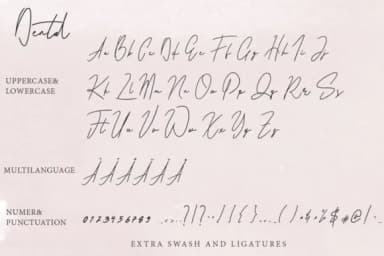 Aa Bb Cc Dd Ee Ff Gg Hh Ii Jj
UPPERCASE&
LOWERCASE
Kk Ll Mm Nn Oo Pp Qq Rr Ss
Tt Uu Vv Ww Xx Yy Zz
MULTILANGUAGE
NUMER&
PUNCTUATION
0123456789
EXTRA SWASH AND LIGATURES